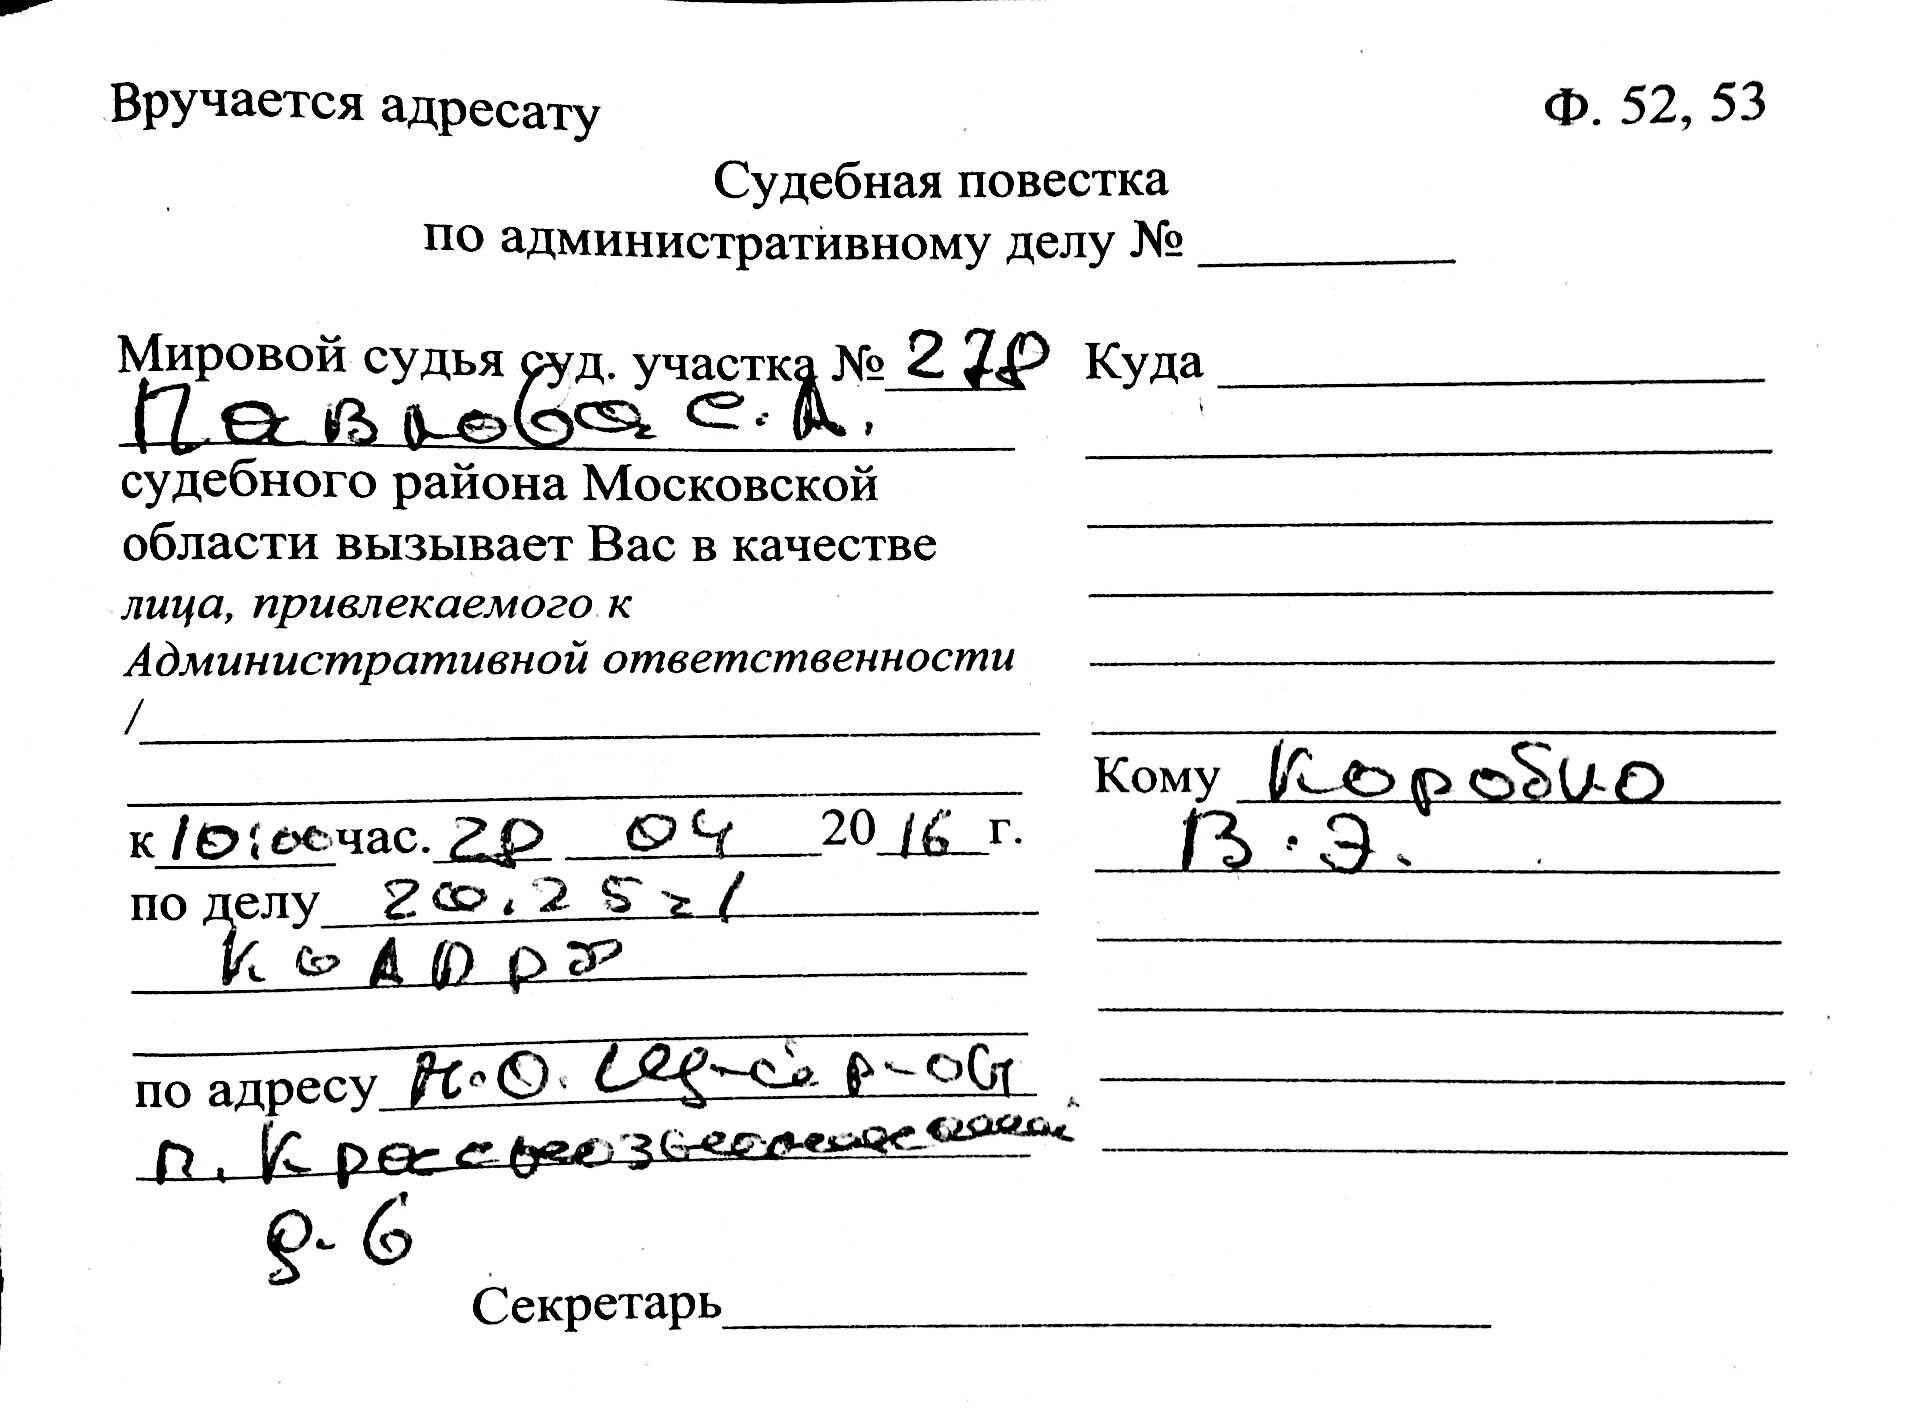 Вручается адресату
Ф. 52, 53
Судебная повестка
по административному делу №
Мировой судья суд. участка № 278
Павлова С.А.
судебного района Московской
области вызывает Вас в качестве
лица, привлекаемого к
Административной ответственности
/
к 10:00 час. 28 04 2016 г.
по делу 20.25 ч 1
КоАП РФ
по адресу М.О. р-он
п. Краснознаменский
д. 6
Куда
Кому Коробко
В.Э.
Секретарь